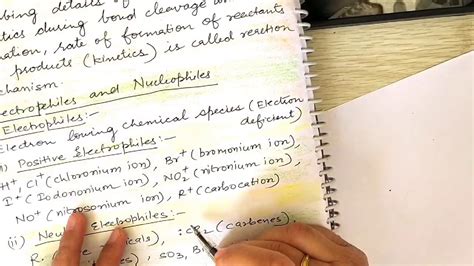 bing details of
tics during bond cleavage
ation, rate of formation of reactants
products (kinetics) is called reaction
chanism.
ectrophiles and Nucleophiles
Electrophiles:-
Electron loving chemical species (Electron
deficient)
Positive Electrophiles:-
H+, Cl+ (chloronium ion), Br+ (bromonium ion),
I+ (Iodononium ion), NO2+ (nitronium ion),
NO+ (nitrosonium ion), R+ (carbocation)
(ii) Ne Electrophiles:-
R. cals), :CR2 (carbenes),
SO3, B